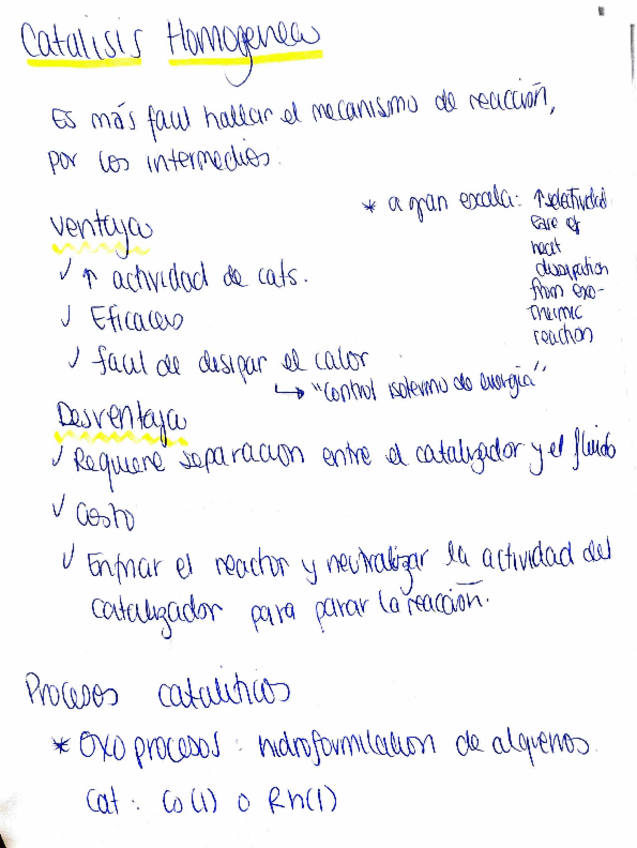 Catalisis Homogenea
Es más facil hallar el mecanismo de reacción,
por los intermedios.
* a gran escala: ↑selectividad
Ease of
heat
dissipation
from exo-
thermic
reaction
Ventaja
✓ ↑ actividad de cats.
✓ Eficaces
✓ facil de disipar el calor
↳ "control isotermo de energia"
Desventaja
✓ Requiere separacion entre el catalizador y el fluido
✓ Costo
✓ Enfriar el reactor y neutralizar la actividad del
catalizador para parar la reacción.
Procesos cataliticos
* Oxo procesos : hidroformilacion de alquenos.
Cat : Co(1) o Rh(1)